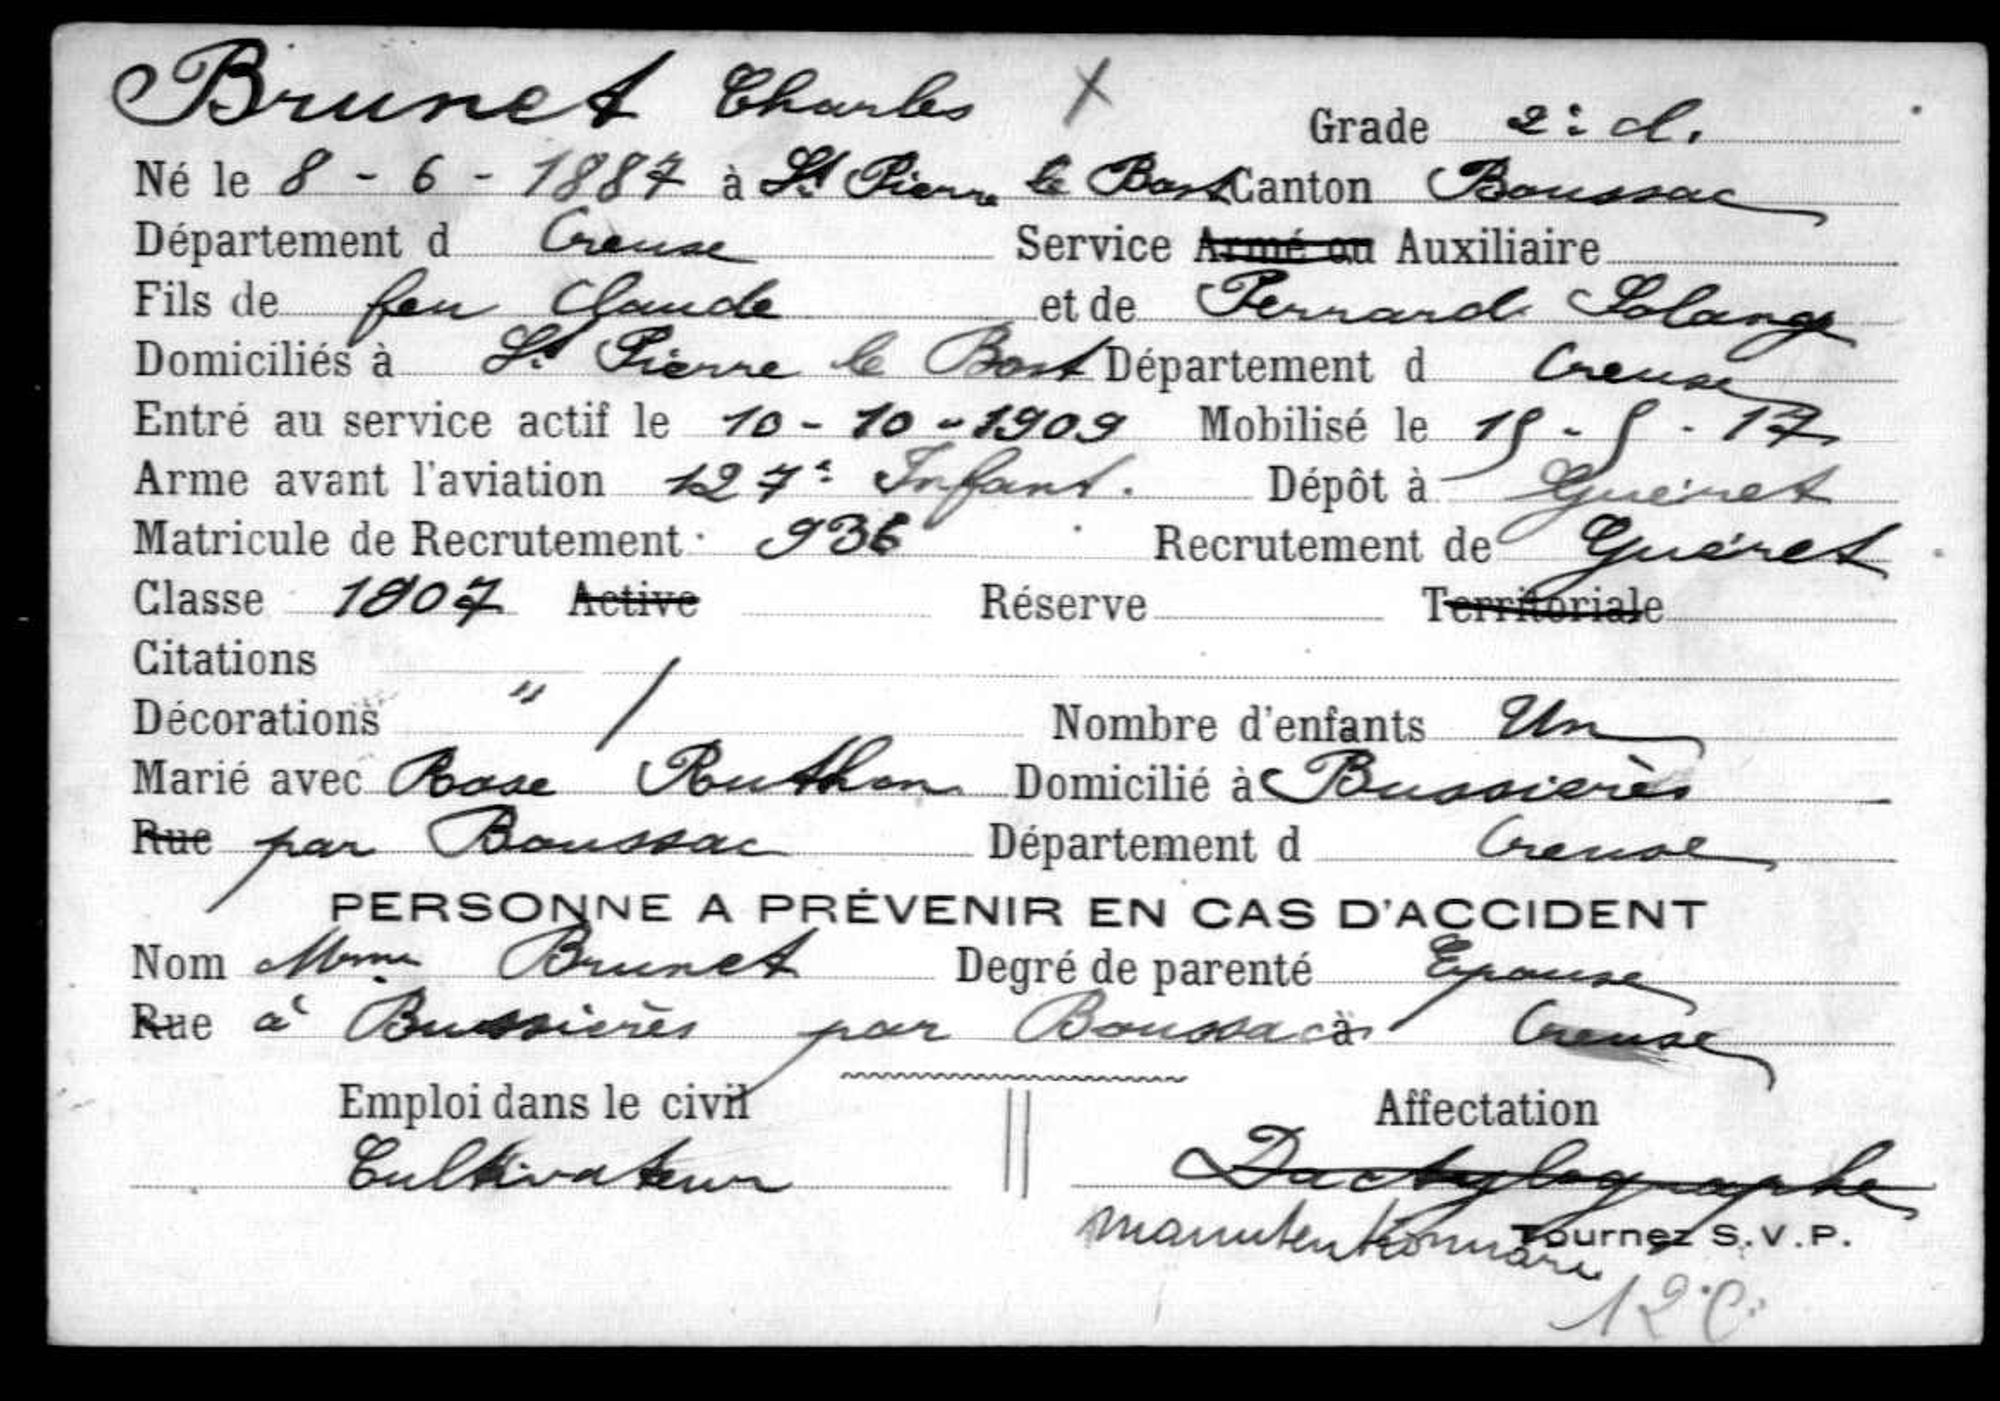 Brunet Charles X Grade 2e cl.
Né le 8 - 6 - 1887 à St Pierre le Bost Canton Boussac
Département d Creuse Service Armé ou Auxiliaire
Fils de feu Claude et de Pernard Solange
Domiciliés à St Pierre le Bost Département d Creuse
Entré au service actif le 10 - 10 - 1909 Mobilisé le 15 - 5 - 17
Arme avant l'aviation 127e Infant. Dépôt à Guéret
Matricule de Recrutement 936 Recrutement de Guéret
Classe 1907 Active Réserve Territoriale
Citations
Décorations " / Nombre d'enfants Un
Marié avec Rose Ruthon Domicilié à Bussierès
Rue par Boussac Département d Creuse
PERSONNE A PRÉVENIR EN CAS D'ACCIDENT
Nom Mme Brunet Degré de parenté Epouse
Rue à Bussierès par Boussac à Creuse
Emploi dans le civil Affectation
Cultivateur Dactylographe
manutentionnaire Tournez S.V.P.
12e C.